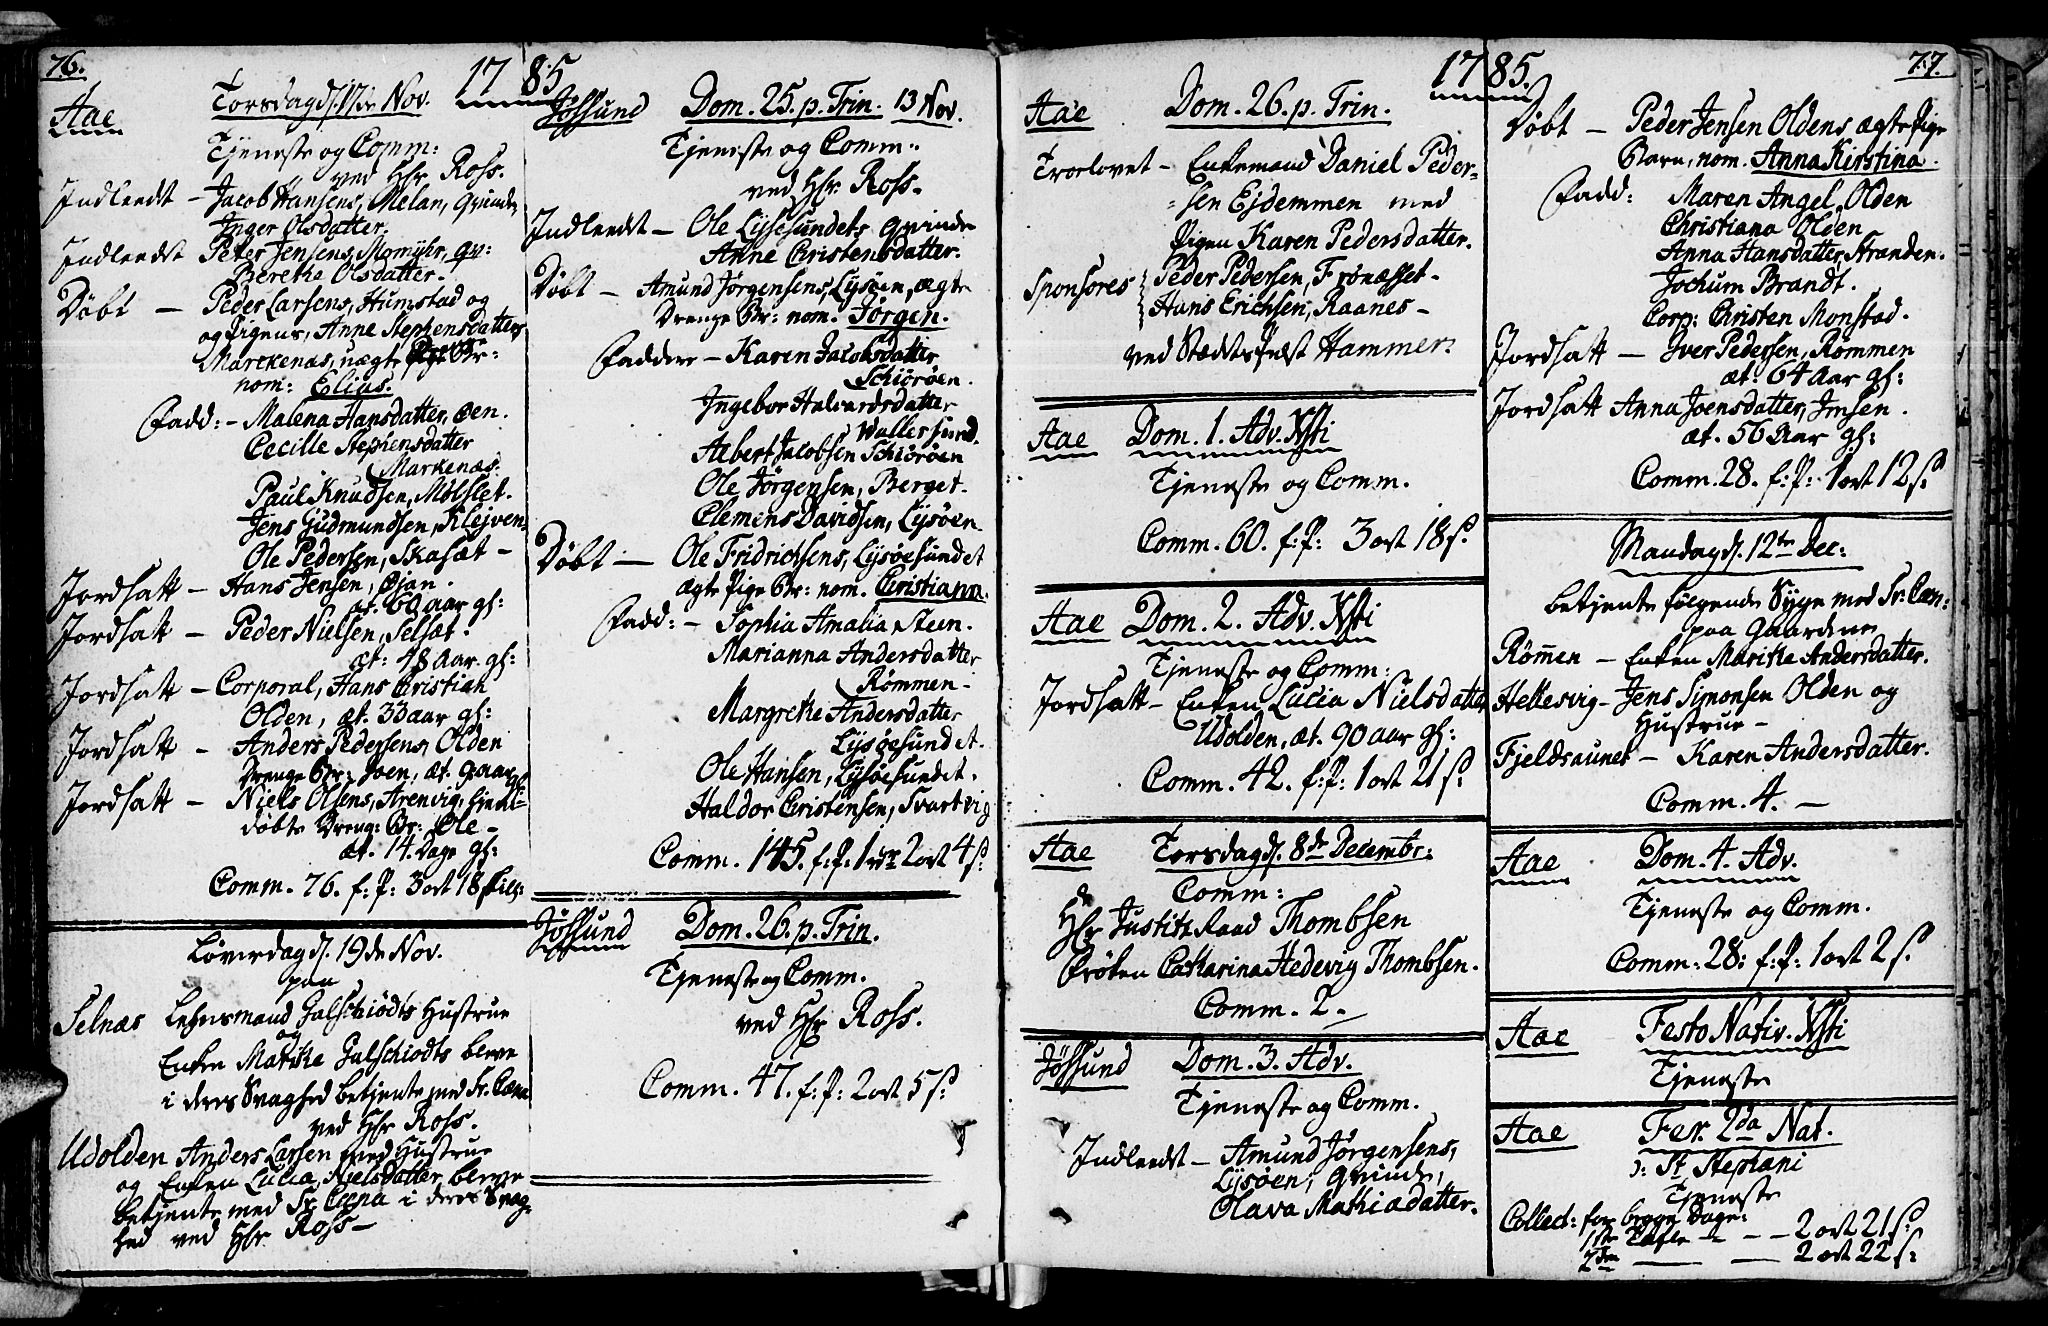 76.
1785
Aae
Torsdag d. 17de Nov.
Tjeneste og Comm:
ved Hr Ross.
Indleedt – Jacob Hansens, Melan, Qvinde
Inger Olsdatter.
Indleedt Peter Jensens, Momyhr, qv:
Berethe Olsdatter.
Døbt – Peder Larsens, Humstad og
og Pigens, Anne Stephensdatters
Marckenæs, uægte Br:
nom: Elias.
Fadd: – Malena Hansdatter, Øen.
Cecille Stephensdatter
Markenæs.
Paul Knudsen, Mølslet.
Jens Gudmundsen, Klejven
Ole Pedersen, Skasæt –
Jordsatt – Hans Jensen, Øjan.
æt. 60 aar gl:
Jordsatt – Peder Nielsen, Selsæt.
æt: 48 Aar. gl:
Jordsatt – Corporal, Hans Christian
Olden, æt. 33 aar gl:
Jordsatt – Anders Pedersens, Olden
Drenge Br: Joen, æt. 9 aar gl
Jordsatt – Niels Olsens, Arenvig, hiem-
døbte Dreng: Br: Ole –
æt. 14. Dage gl:
Comm. 76. f: P: 3 ort 18 skill:
Løverdag d. 19de Nov.
paa
Selnæs Lehnsmand Galschiødts Hustrue
og
Enken Marike Galschiodts bleve
i deres Svaghed betjente med Sr. Cæna
ved Hr Ross.
Udolden Anders Larsen med Hustrue
og Enken Lucia Nielsdatter bleve
betjente med Sr. Coena i deres Svag-
hed ved Hr Ross –
Jøssund
Dom. 25. p. Trin. 13 Nov.
Tjeneste og Comm.
ved Hr. Ross.
Indleedt – Ole Lysesundets Qvinde
Anne Christensdatter.
Døbt – Amund Jørgensens, Lysøen, ægte
Drenge Br: nom. Jørgen.
Faddere – Karen Jacobsdatter
Schiørøen.
Ingebor Halvardsdatter
Vallersund.
Albert Jacobsen Schiørøen
Ole Jørgensen, Berget.
Clemens Davidsen, Lysøen
Døbt – Ole Fridrichsens, Lysøesundet
ægte Pige Br: nom. Christiann.
Fadd: – Sophia Amalia Steen.
Marianna Andersdatter
Rømmen –
Margrethe Andersdatter
Lysøesundet.
Ole Hansen, Lysøesundet.
Haldor Christensen, Svartvig
Comm. 145. f: P: 1 rdr 2 ort 4 s:
Jøssund
Dom. 26. p. Trin.
Tjeneste og Comm.
ved Hr Ross.
Comm. 47. f: P: 2 ort 5 s:
1785.
77.
Aae
Dom. 26. p. Trin.
Troelovet – Enkemand Daniel Peder-
sen Ejdemmen med
Pigen Karen Pedersdatter.
Sponsores Peder Pedersen, Frønæsset.
Hans Erichsen, Raanes –
ved Hammer.
Aae
Dom. 1. Adv. Xsti
Tjeneste og Comm.
Comm. 60. f: P: 3 ort 18 s:
Aae
Dom. 2. Adv. Xsti
Tjeneste og Comm:
Jordsatt – Enken Lucia Nielsdatter
Udolden, æt. 90 aar gl:
Comm. 42. f: P: 1 ort 21 s:
Aae
Torsdag d. 8de Decembr:
Comm:
Hr Justitz Raad Thombsen
Frøken Catharina Hedevig Thombsen.
Comm. 2. –
Jøssund
Dom. 3. Adv.
Tjeneste og Comm.
Indleedt – Amund Jørgensens,
Lysøen, Qvinde,
Olava Mathiædatter.
Døbt – Peder Jensen Oldens ægte Pige
Barn, nom. Anna Kerstina.
Fadd: Maren Angel, Olden
Christiana Olden
Anna Hansdatter, Stranden.
Jochum Brandt.
Corp: Christen Monstad.
Jordsatt – Iver Pedersen, Rømmen
æt. 64 Aar gl:
Jordsatt Anna Joensdatter, Imsen.
æt. 56 Aar gl:
Comm. 28. f: P: 1 ort 12 s:
Mandag d. 12te Dec:
betjente følgende Syge med Sr. Cæn:
paa Gaardene
Rømen – Enken Marike Andersdatter.
Hellesvig – Jens Simonsen Olden og
Hustrue –
Fjeldsaunet – Karen Andersdatter.
Comm. 4. –
Aae
Dom. 4. Adv.
Tjeneste og Comm.
Comm: 28: f: P: 1 ort 2 s:
Aae
Festo Nativ. Xsti
Tjeneste
Aae
Fer. 2da Nat.
): St Stephani
Tjeneste
Collect: for begge Dage:
1ste Tafle – – – 2 ort 21 s:
2den – – 2 ort 22 s: